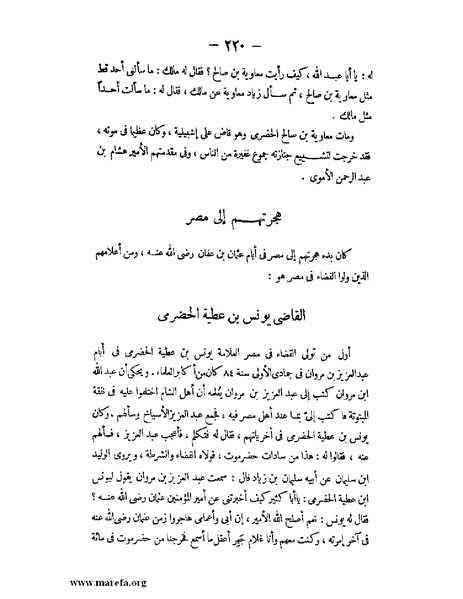 — ٢٢٠ —
له : يا أبا عبد الله ، كيف رأيت معاوية بن صالح ؟ فقال له مالك : ما سألنى أحد قط
مثل معاوية بن صالح ، ثم سأل زياد معاوية عن مالك ، فقال له : ما سألت أحداً
مثل مالك .
ومات معاوية بن صالح الحضرمى وهو قاض على إشبيلية ، وكان عظيما فى موته ،
فقد خرجت لتشييع جنازته جموع غفيرة من الناس ، وفى مقدمتهم الأمير هشام بن
عبد الرحمن الأموى .
هجرتهم إلى مصر
كان بدء هجرتهم إلى مصر فى أيام عثمان بن عفان رضى الله عنه ، ومن أعلامهم
الذين ولوا القضاء فى مصر هو :
القاضى يونس بن عطية الحضرمى
أول من تولى القضاء فى مصر العلامة يونس بن عطية الحضرمى فى أيام
عبد العزيز بن مروان فى جمادى الأولى سنة ٨٤ كان من أكابر العلماء . ويحكى أن عبد الله
ابن مروان كتب إلى عبد العزيز بن مروان يُعلمه أن أهل الشام اختلفوا عليه فى نفقة
المبتوتة فاكتب إلىّ بما عند أهل مصر فيه ، فجمع عبد العزيز الأشياخ وسألهم . وكان
يونس بن عطية الحضرمى فى أخرياتهم ، فقال له فتكلم ، فأعجب عبد العزيز ، فسألهم
عنه ، فقالوا له : هذا من سادات حضرموت ، فولاه القضاء والشرطة ، ويروى الوليد
ابن سليمان عن أبيه سليمان بن زياد قال : سمعت عبد العزيز بن مروان يقول ليونس
ابن عطية الحضرمى : يا أبا كثير كيف أخبرتنى عن أمير المؤمنين عثمان رضى الله عنه ؟
فقال له يونس : نعم أصلح الله الأمير ، إن أبى وأعمامى هاجروا زمن عثمان رضى الله عنه
فى آخر إمرته ، وكنت معهم وأنا غلام جَفر أعقل ما أسمع فخرجنا من حضرموت فى مائة
www.marefa.org